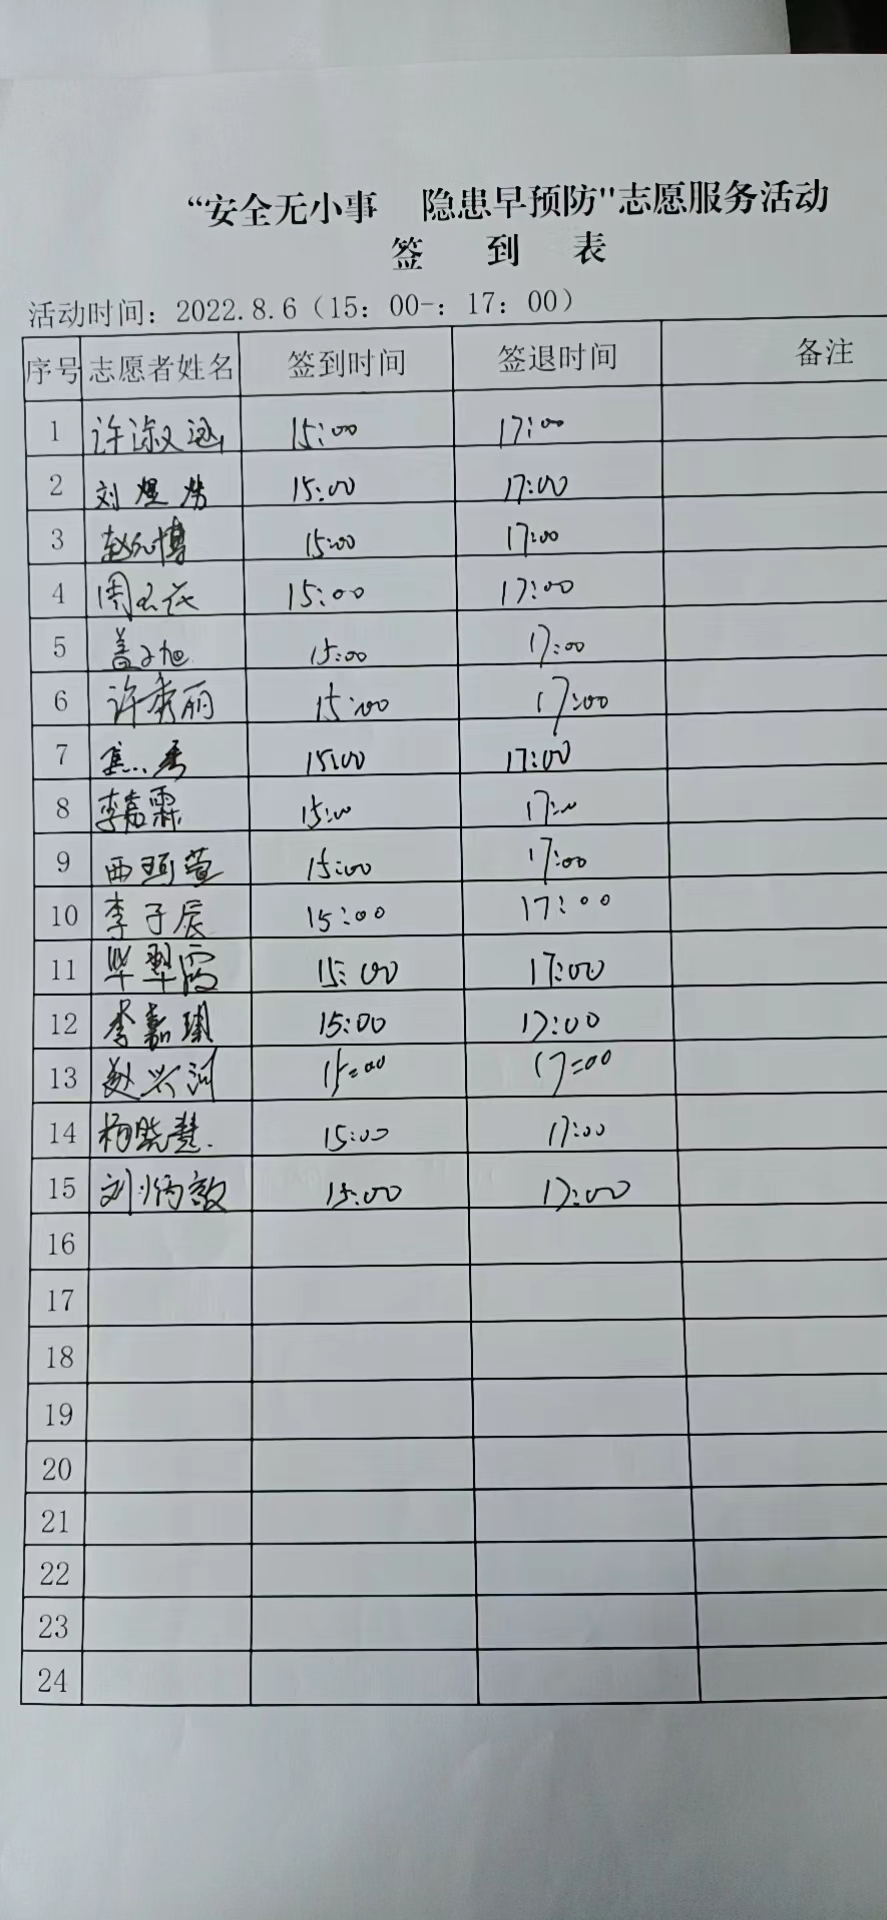 “安全无小事 隐患早预防"志愿服务活动
签 到 表
活动时间：2022.8.6（15：00-：17：00）
序号 志愿者姓名 签到时间 签退时间 备注
1 许淑涵 15:00 17:00
2 刘煜 15:00 17:00
3 赵 博 15:00 17:00
4 周 15:00 17:00
5 盖子旭 15:00 17:00
6 许秀丽 15:00 17:00
7 焦 15:00 17:00
8 李嘉霖 15:00 17:00
9 西珂萱 15:00 17:00
10 李子辰 15:00 17:00
11 毕翠霞 15:00 17:00
12 李嘉琪 15:00 17:00
13 赵兴河 15=00 17=00
14 杨晓慧. 15:00 17:00
15 刘炳毅 15:00 17:00
16
17
18
19
20
21
22
23
24